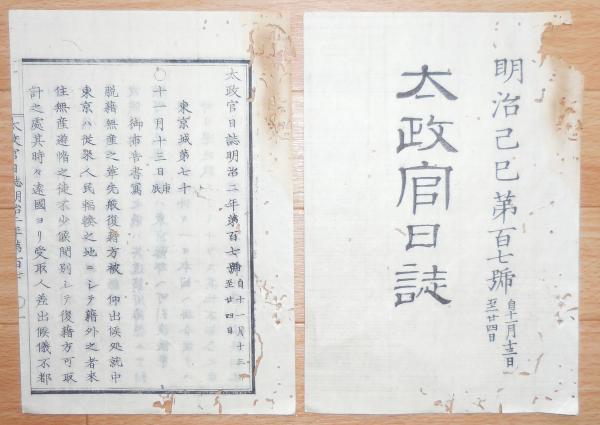 明治己巳第百七號
自十一月十三日
至廿四日
太政官日誌
太政官日誌明治二年第百七號
自十一月十三
至廿四日
東京城第七十
○十一月十三日
御布告書寫
脱籍無産之輩先般復籍方被 仰出候処就中
東京ハ從衆人民輻輳之地ニシテ籍外之者來
住無産遊惰之徒不少候間別シテ復籍方可取
計之處其時々遠國ヨリ受取人差出候儀不都
太政官日誌明治二年第百七 ○一